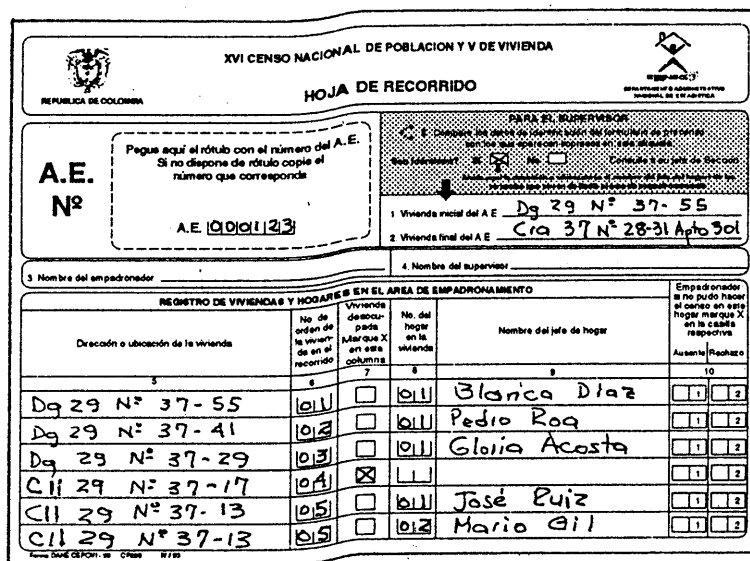 XVI CENSO NACIONAL DE POBLACION Y V DE VIVIENDA
HOJA DE RECORRIDO
REPUBLICA DE COLOMBIA
DEPARTAMENTO ADMINISTRATIVO
NACIONAL DE ESTADISTICA
A.E.
Nº
Pegue aquí el rótulo con el número del A.E.
Si no dispone de rótulo copie el
número que corresponda
A.E. 000123
PARA EL SUPERVISOR
1 Vivienda inicial del A E Dg 29 Nº 37-55
2 Vivienda final del A E Cra 37 Nº 28-31 Apto 301
3 Nombre del empadronador
4. Nombre del supervisor
REGISTRO DE VIVIENDAS Y HOGARES EN EL AREA DE EMPADRONAMIENTO
Dirección o ubicación de la vivienda
No. de orden de la vivienda en el recorrido
Vivienda desocupada Marque X en esta columna
No. del hogar en la vivienda
Nombre del jefe de hogar
Empadronador si no pudo hacer el censo en este hogar marque X en la casilla respectiva
Ausente Rechazo
5 6 7 8 9 10
Dg 29 Nº 37-55 01 01 Blanca Diaz 1 2
Dg 29 Nº 37-41 02 01 Pedro Roa 1 2
Dg 29 Nº 37-29 03 01 Gloria Acosta 1 2
Cll 29 Nº 37-17 04 X 1 2
Cll 29 Nº 37-13 05 01 José Ruiz 1 2
Cll 29 Nº 37-13 05 02 Mario Gil 1 2